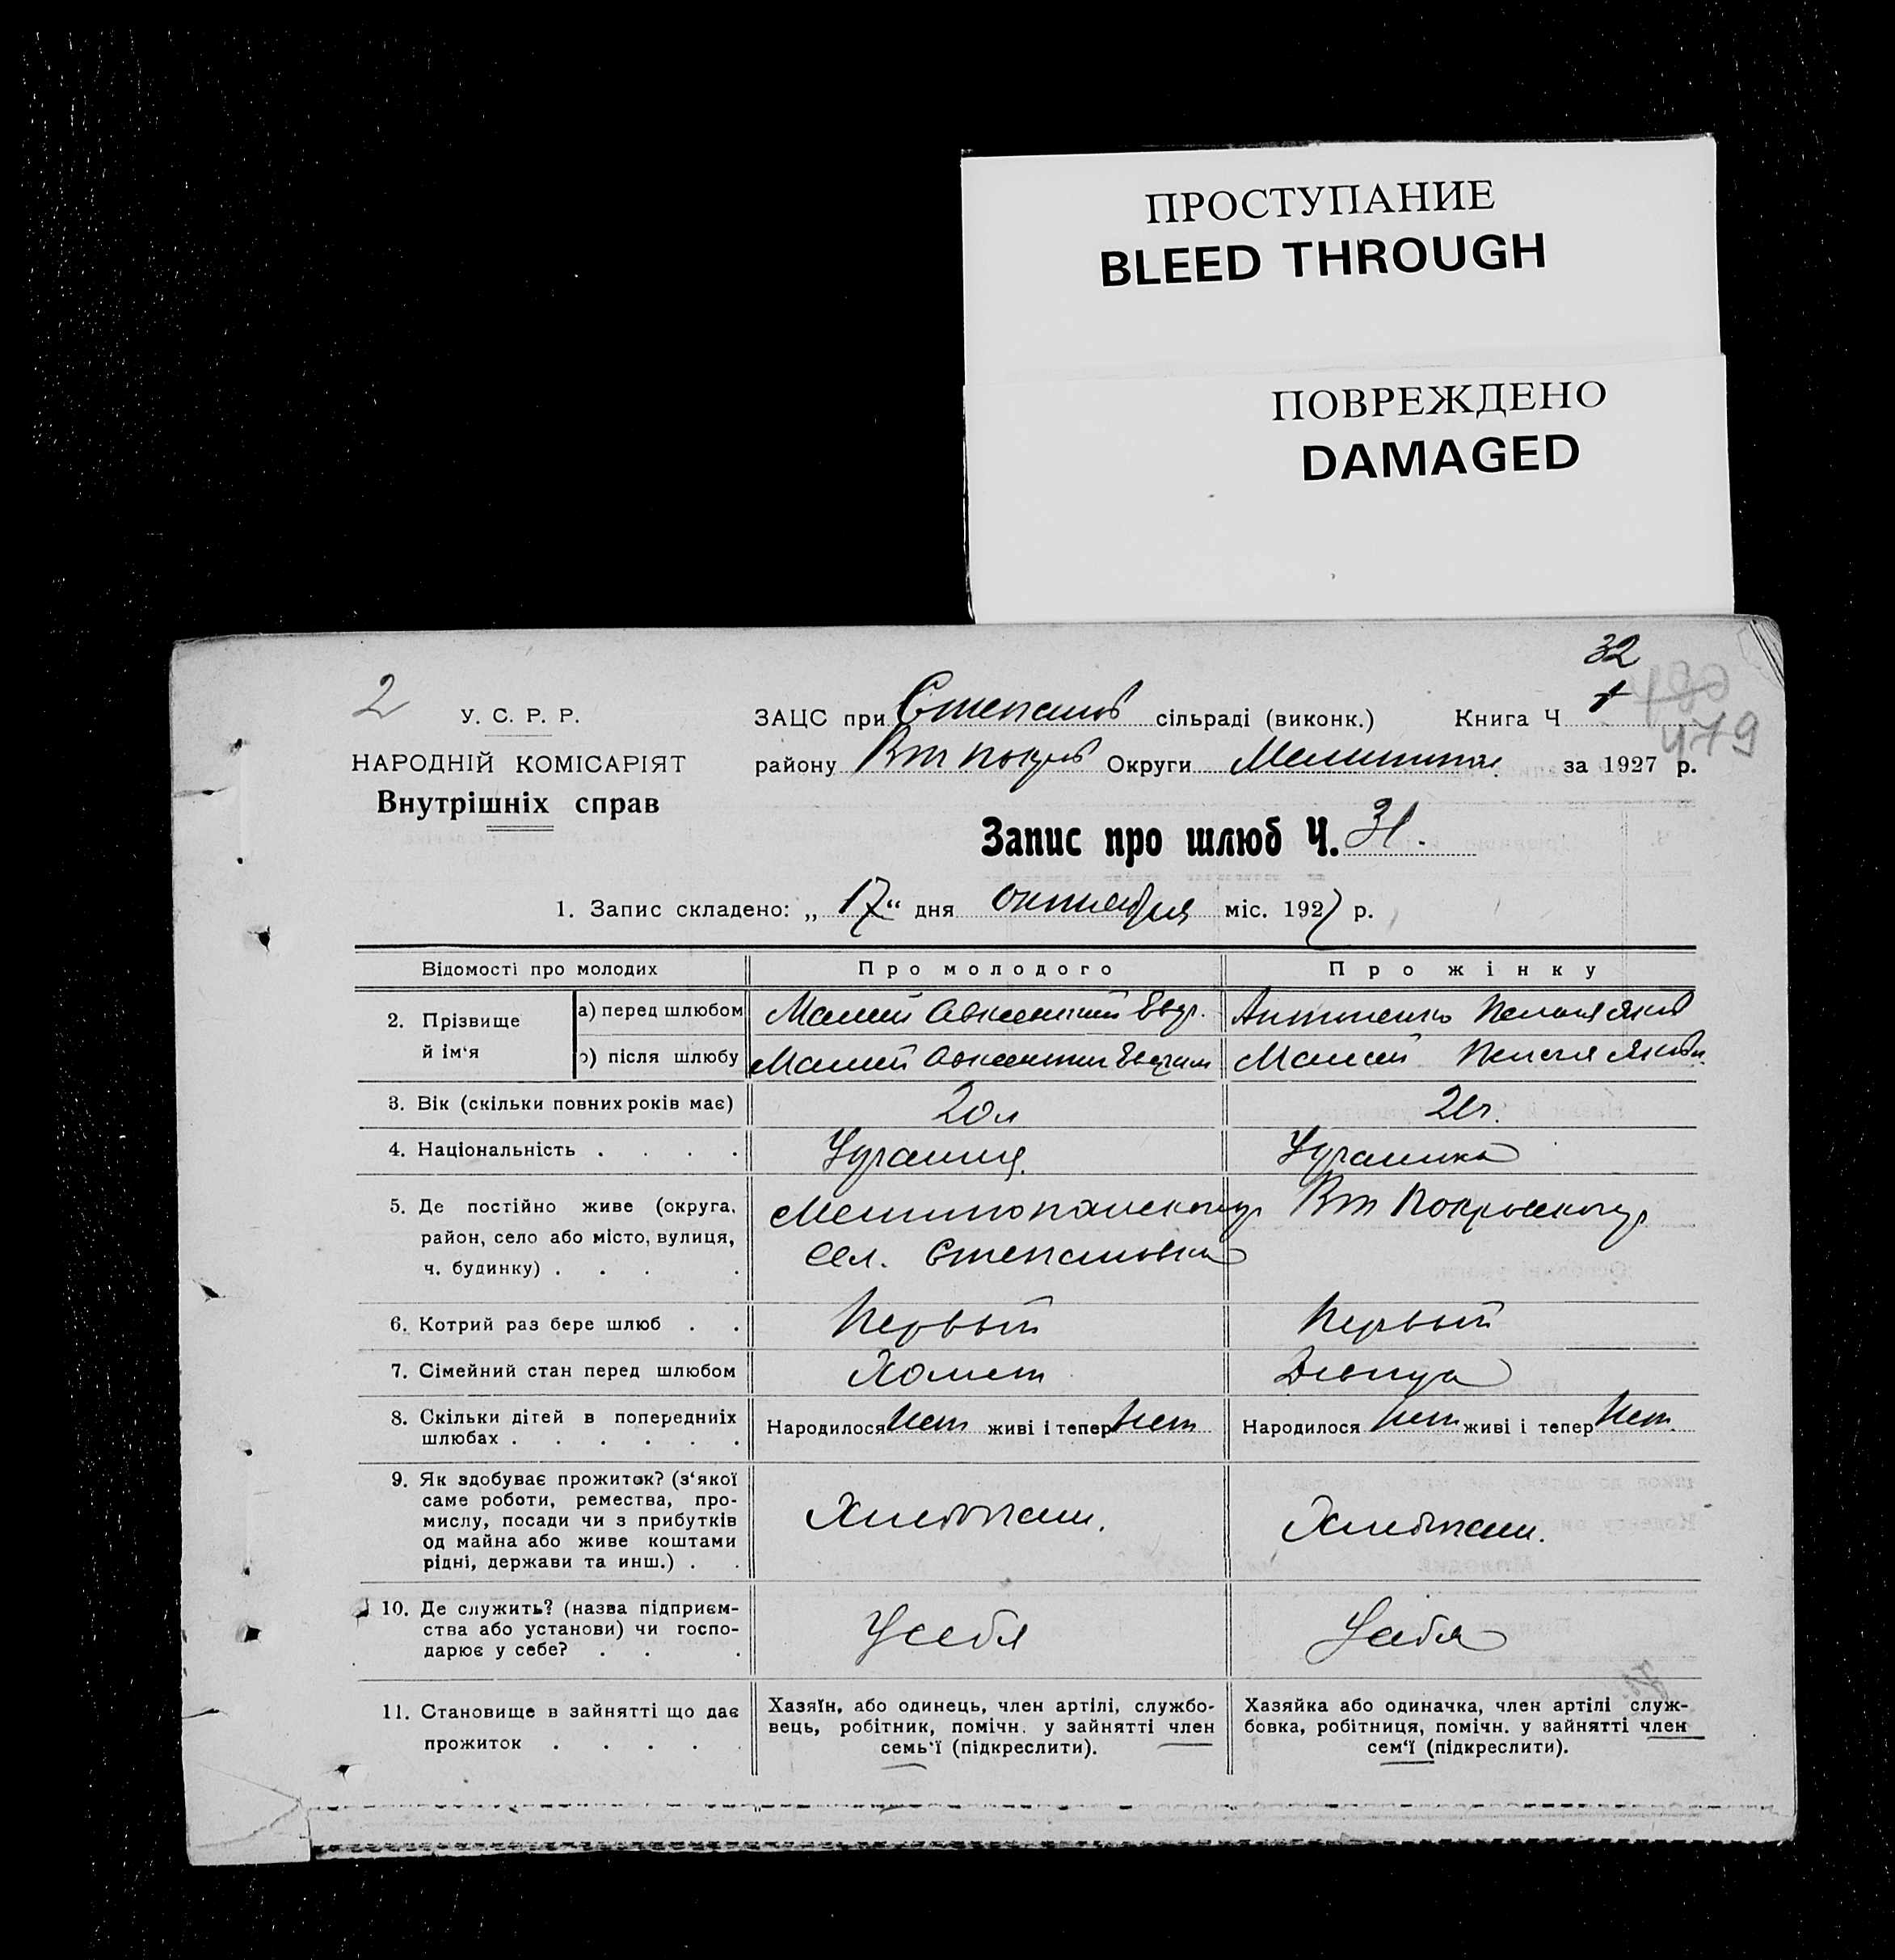 ПРОСТУПАНИЕ
BLEED THROUGH
ПОВРЕЖДЕНО
DAMAGED
32
2
У. С. Р. Р.
ЗАЦС при Степанов сільраді (виконк.) Книга Ч 1
479
НАРОДНІЙ КОМІСАРІЯТ
району Вт Покров Округи за 1927 р.
Внутрішніх справ
Запис про шлюб Ч. 31.
1. Запис складено: „ 17 “ дня октября міс. 1927 р.
Відомості про молодих Про молодого Про жінку
2. Прізвище й ім‘я
а) перед шлюбом Малий Авксентий Пелагея Яков
б) після шлюбу Малий Авксентий Малий Пелагея Яковл.
3. Вік (скільки повних років має) 20 л
4. Національність . . . . Украинец Украинка
5. Де постійно живе (округа, Мелитопольского Вт Покровского
район, село або місто, вулиця, сел. Степановка
ч. будинку) . . . .
6. Котрий раз бере шлюб . . Первый Первый
7. Сімейний стан перед шлюбом Холост Девица
8. Скільки дітей в попередниіх Народилося Нет живі і тепер Нет Народилося Нет живі і тепер Нет
шлюбах . . . . . .
9. Як здобуває прожиток? (з‘якої
саме роботи, ремества, про-
мислу, посади чи з прибутків Хлебопаш. Хлебопаш.
од майна або живе коштами
рідні, держави та инш.) . .
10. Де служить? (назва підприєм-
ства або установи) чи госпо- У себя У себя
дарює у себе? . . .
11. Становище в зайнятті що дає Хазяїн, або одинець, член артілі, службо- Хазяйка або одиначка, член артілі служ-
прожиток . . . . . вець, робітник, помічн. у зайнятті член бовка, робітниця, помічн. у зайнятті член
семь‘ї (підкреслити). сем‘ї (підкреслити).